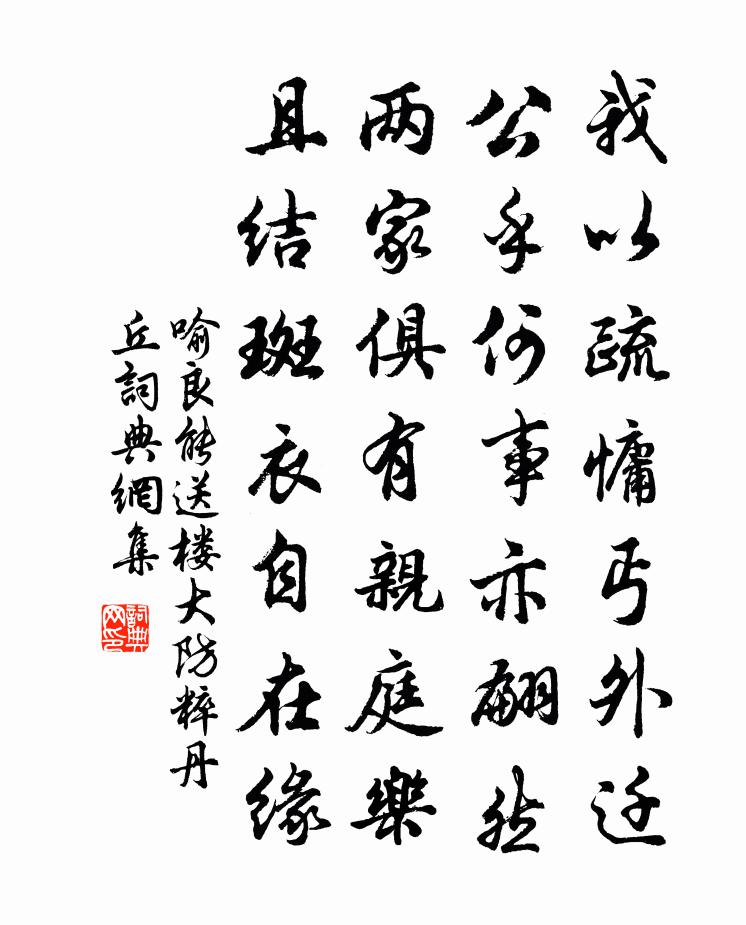 我以疏慵丐外迁
公乎何事亦翩然
两家俱有親庭樂
且结斑衣自在缘
喻良能送楼大防粹丹
丘詞典網集
詞典
网印